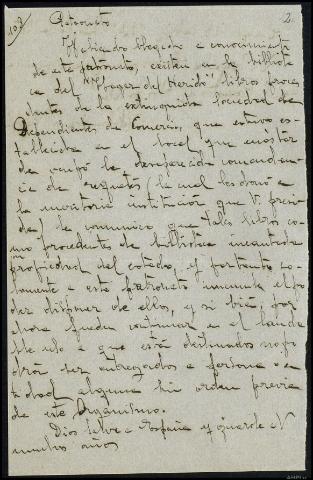 102
2
Patronato
Habiendo llegado a conocimiento
de este patronato, existen en la bibliote
ca del "Hogar del Herido" libros proce
dentes de la extinguida Sociedad de
Dependientes de Comercio, que estuvo es-
tablecida en el local que más tar
de ocupó la desaparecida comandan-
cia de requetés (la cual los donó a
la meritoria institución que V. presi
de) le comunico que tales libros co-
mo procedentes de biblioteca incautada
son propiedad del estado, y por tanto so-
lamente a este patronato incumbe el po
der disponer de ellos, y si bien, por
ahora pueden continuar en el lauda
ble uso a que están destinados no po
drán ser entregados a persona o en
tidad alguna sin orden previa
de este Organismo.
Dios salve a España y guarde a V
muchos años